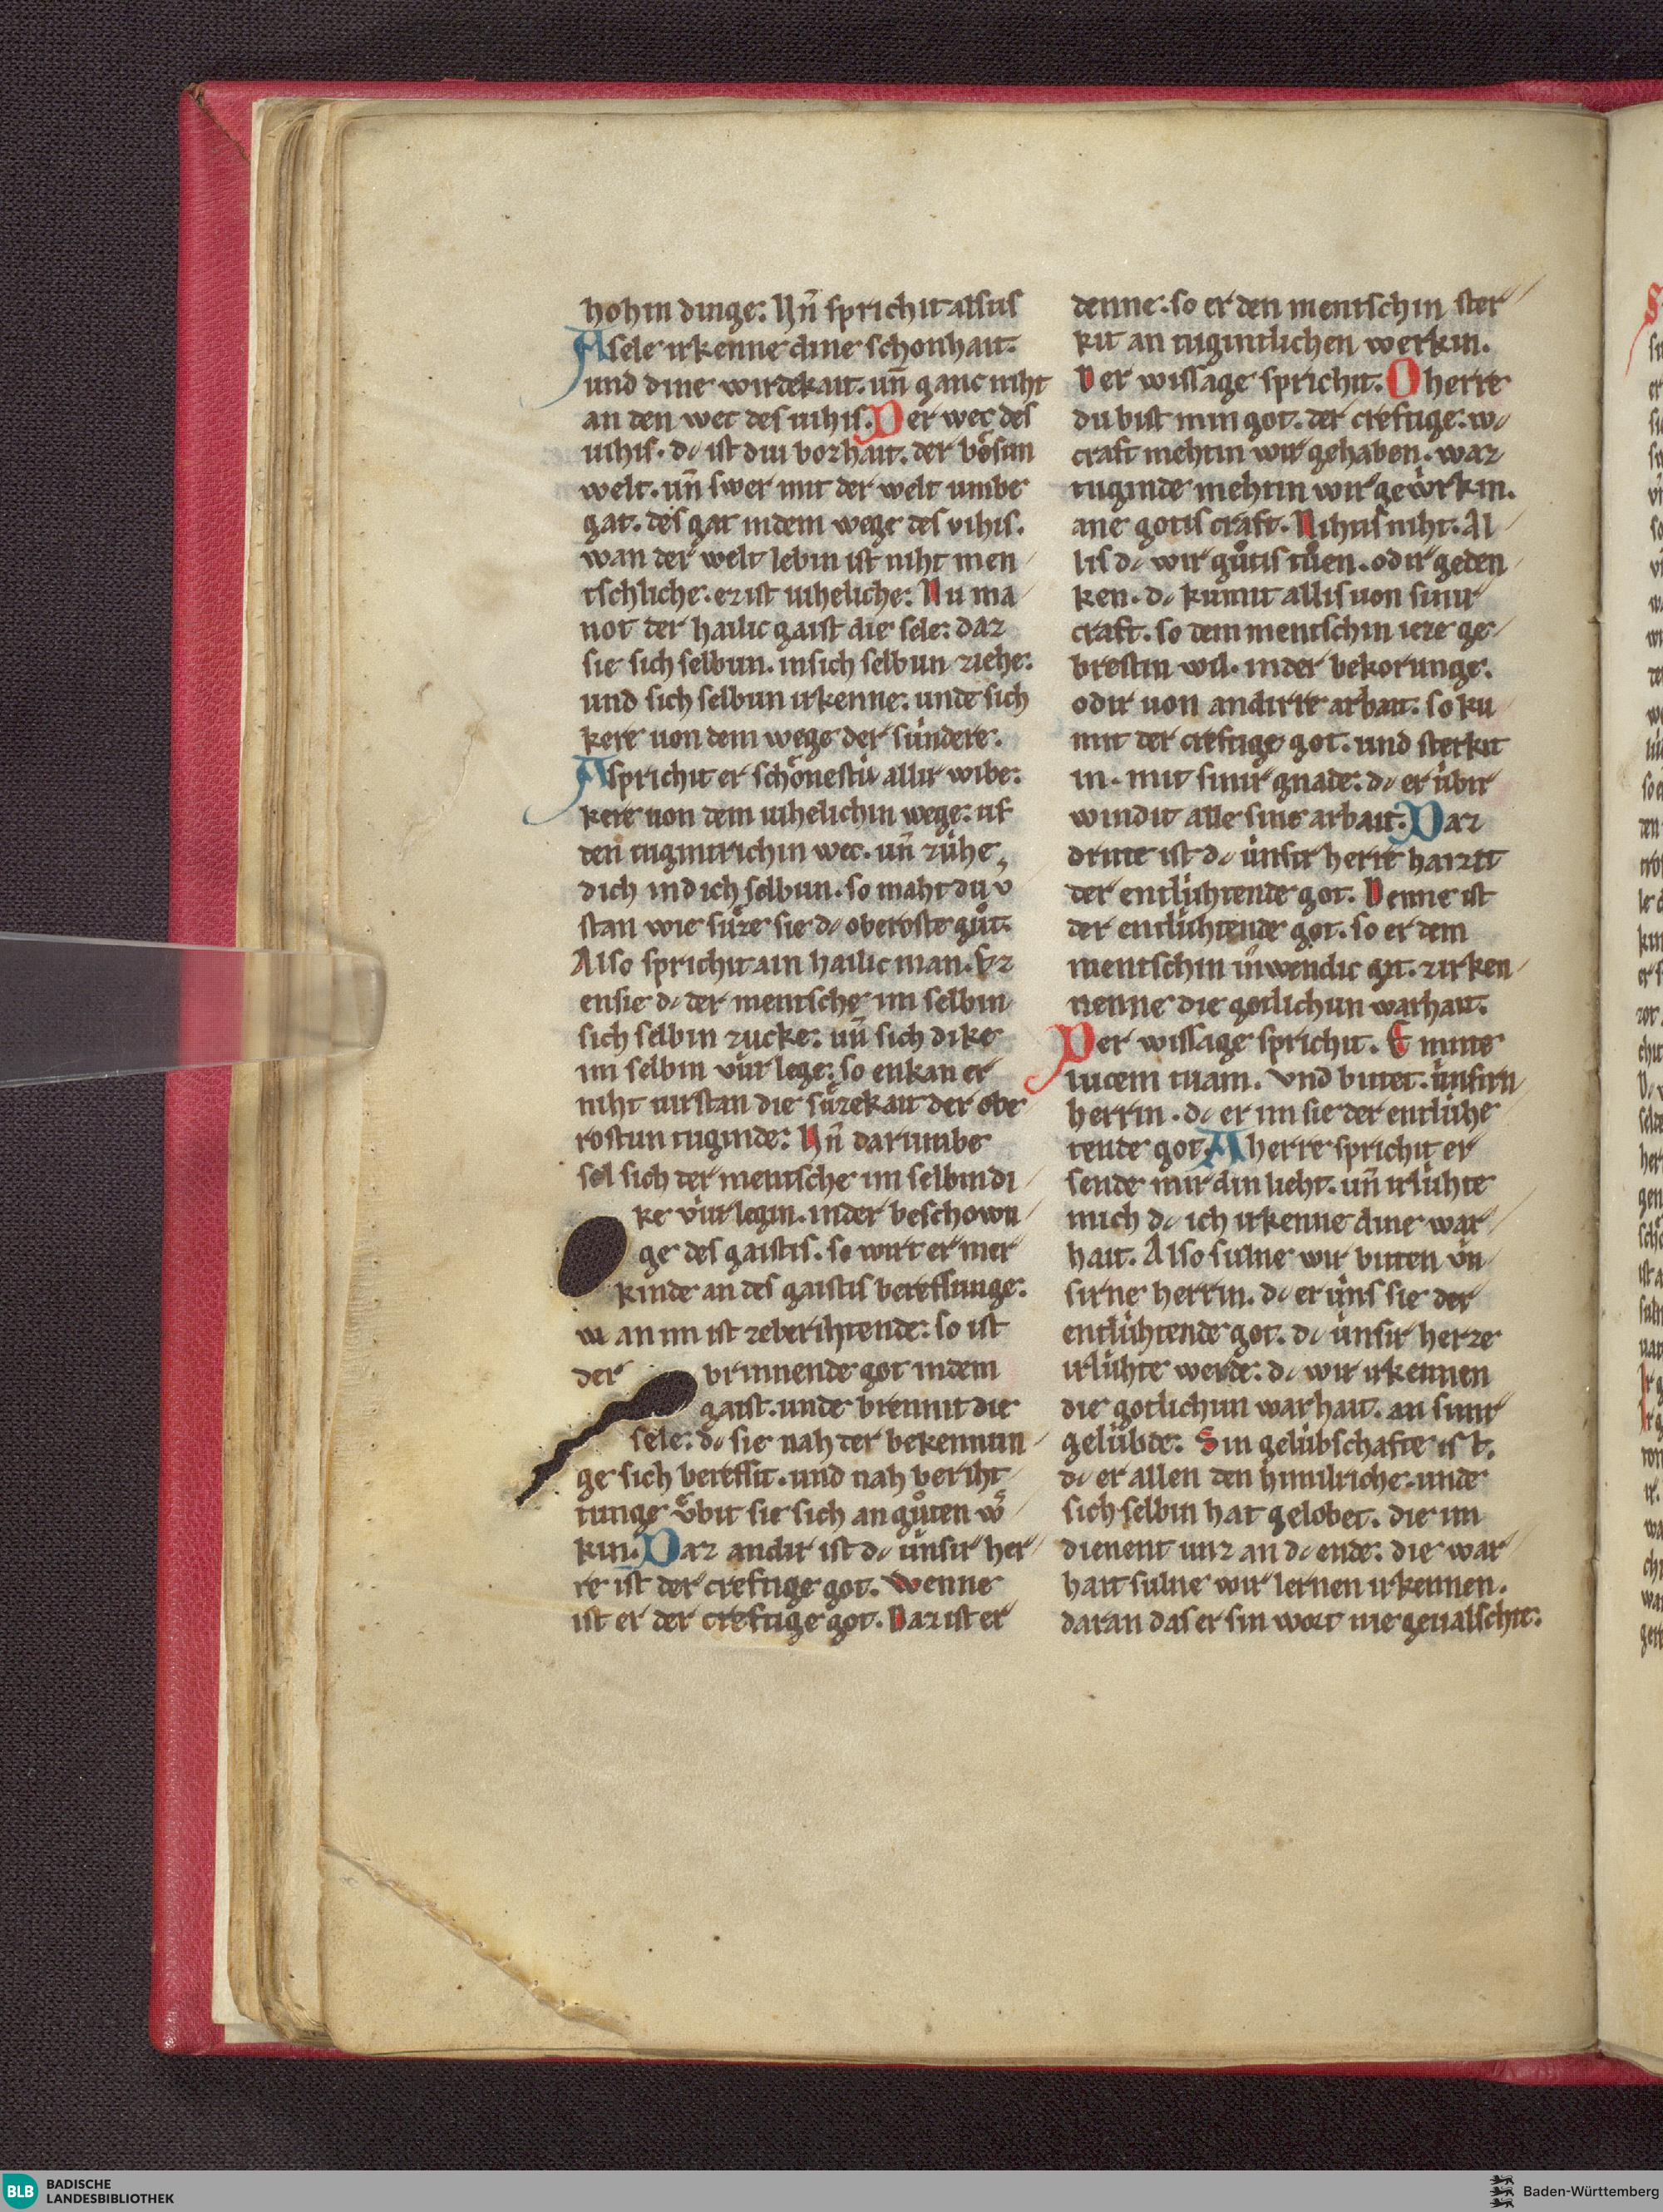 hohin dinge: Uñ sprichit alsus
A sele irkenne dine schonhait.
und dine wirdekait. uñ ganc niht
an den wec des vihis. Der wec des
vihis. dc ist diu bozhait. der bösun
welt. uñ swer mit der welt umbe
gat. des gat indem wege des vihis.
wan der welt lebin ist niht men
tschliche. ez ist viheliche: Nu ma
not der hailic gaist die sele: daz
sie sich selbun. insich selbun ziehe:
und sich selbun irkenne: unde sich
kere uon dem wege der sündere.
A sprichit er schönestü allir wibe:
kere uon dem vihelichin wege: uf
den tugintrichin wec. uñ zühe
dich indich selbun. so maht du v
stan wie süze sie dc oberoste gůt.
Also sprichit ain hailic man. Ez
ensie dc der mentsche im selbin
sich selbin zucke: uñ sich dike
im selbin vür lege: so enkan er
niht uirstan die süzekait der obe
rostun tuginde: Uñ darumbe
sol sich der mentsche im selbin di
ke vür legin. inder beschown
ge des gaistis. so wirt er mer
kinde an des gaistis bereffunge:
w an im ist ze berihtende: so ist
der brinnende got indem
gaist. unde brennit die
sele: dc sie nah der bekennun
ge sich bereffit. und nah beriht
tunge v̊bit sie sich an gůten w
kin. Daz andir ist dc ünsir her
re ist der creftige got. Wenne
ist er der creftige got. Daz ist er
denne. so er den mentschin ster
kit an tugintlichen werkin.
Der wissage sprichit. O herre
du bist min got. der creftige. wc
craft mehtin wir gehaben. waz
tuginde mehtin wir gewrkin.
ane gotis craft. Nihtis niht. Al
lis dc wir gůtis tůen. odir geden
ken. dc kumit allis uon sinir
craft. so dem mentschin ieze ge
brestin wil. inder bekorunge.
odir uon andirre arbait. so ku
mit der creftige got. und sterkit
in. mit sinir gnade: dc er übir
windit alle sine arbait: Daz
dritte ist dc ünsir herre haizit
der entlühtende got. Denne ist
der entlühtende got. so er dem
mentschin inwendic git. zirken
nenne die gotlichun warhait.
Der wissage sprichit. E mitte
lucem tuam. Und bitet. ünsirn
herrin. dc er im sie der entlühe
tende got. A herre sprichit er
sende mir din lieht. uñ irlühte
mich dc ich irkenne dine war
hait. Also sulne wir bitten ün
sirne herrin. dc er üns sie der
entlühtende got. dc ünsir herze
irlühte werde: dc wir irkennen
die gotlichun warhait. an sinir
gelübde: Sin gelübschafte ist.
dc er allen den himilriche. unde
sich selbin hat gelobet. die im
dienent unz an dc ende: die war
hait sulne wir lernen irkennen.
daran das er sin wort nie geualschte:
BLB BADISCHE
LANDESBIBLIOTHEK
Baden-Württemberg